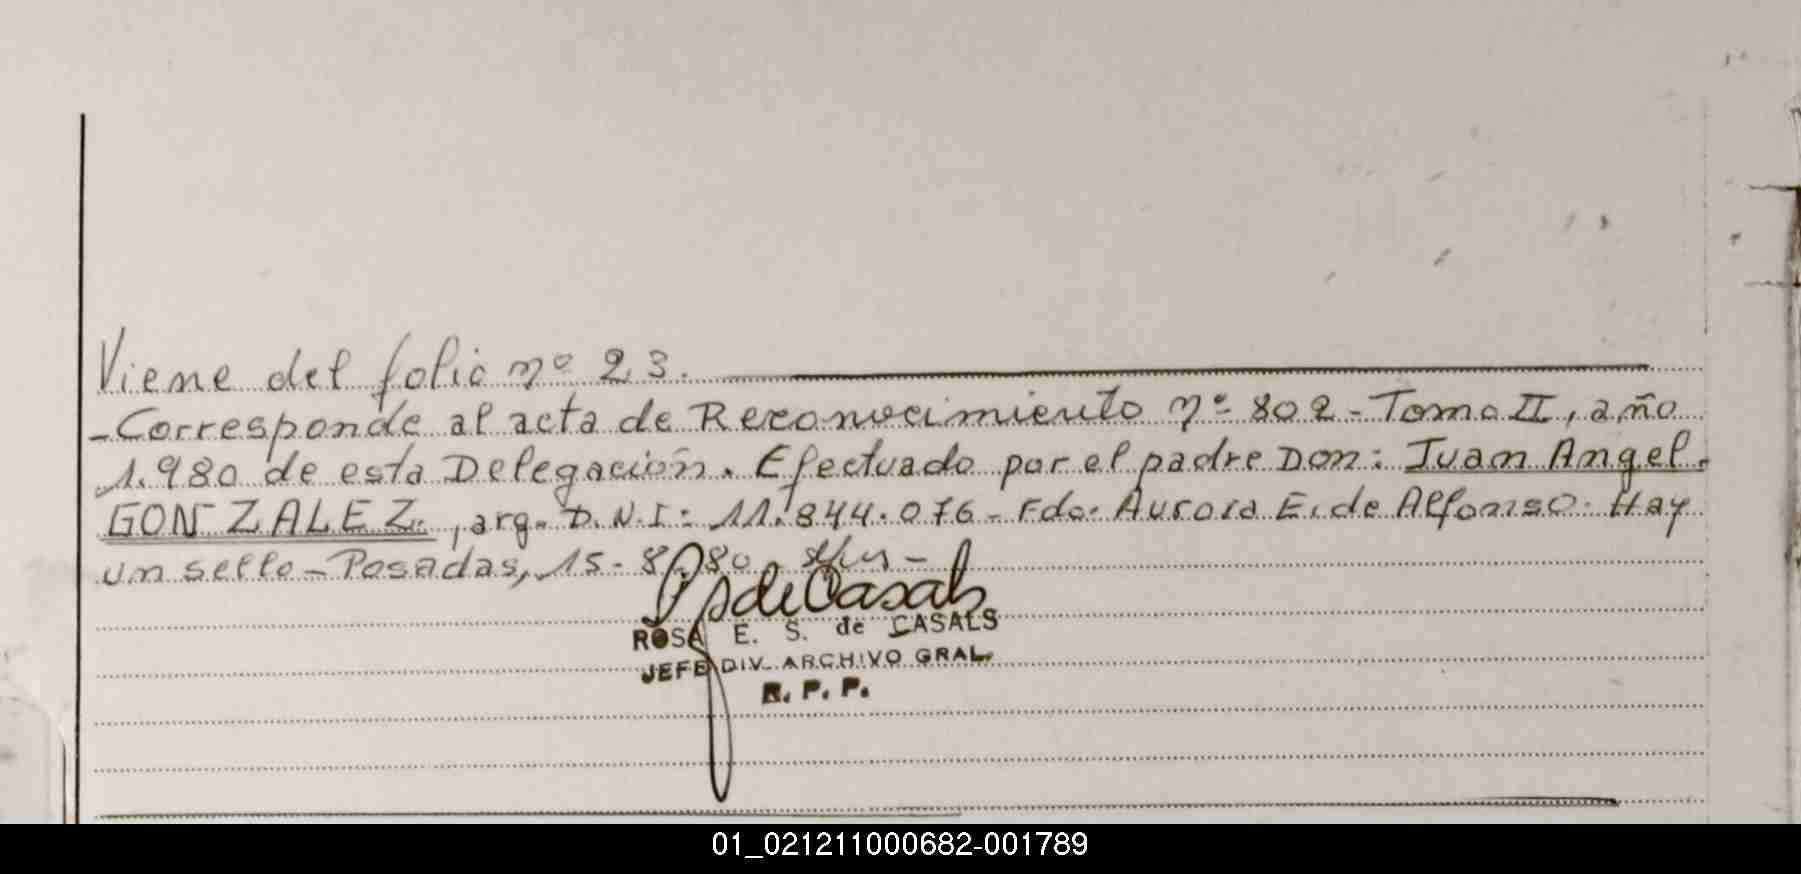 Viene del folio nº 23.
-Corresponde al acta de Reconocimiento nº 802-Tomo II, año
1.980 de esta Delegación. Efectuado por el padre Don: Juan Angel
GONZALEZ, arg. D.N.I: 11.844.076- Fdo. Aurora E. de Alfonso. Hay
un sello-Posadas, 15-8-80
RSdeCasals
ROSA E. S. de CASALS
JEFE DIV. ARCHIVO GRAL.
R. P. P.
01_021211000682-001789